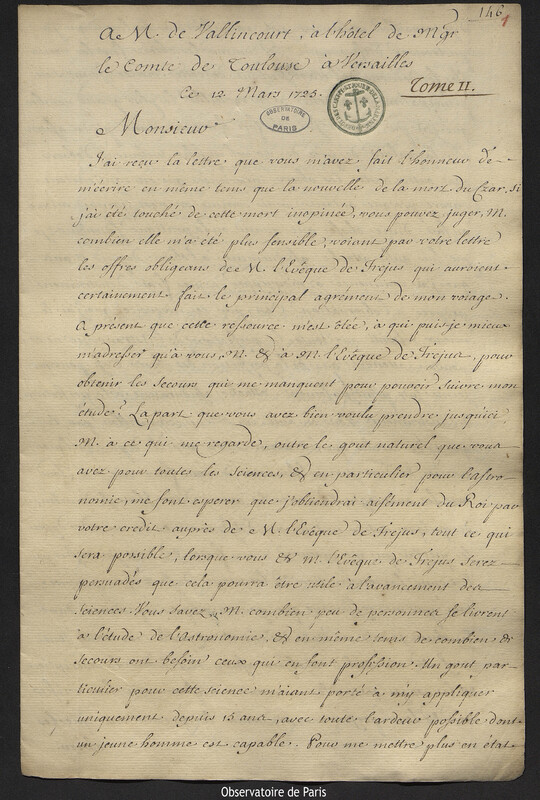 146
1
A M. de Vallincourt, à l'hôtel de Mgr
le Comte de Toulouse à Versailles
Ce 12 Mars 1725.
Tome II.
OBSERVATOIRE
DE
PARIS
Monsieur
J'ai reçu la lettre que vous m'avez fait l'honneur de
m'écrire en même tems que la nouvelle de la mort du Czar, si
j'ai été touché de cette mort inopinée, vous pouvez juger, M.
combien elle m'a été plus sensible, voiant par votre lettre
les offres obligeans de M. l'Evêque de Frejus qui auroient
certainement fait le principal agrément de mon voiage.
A présent que cette ressource m'est ôtée, à qui puis-je mieux
m'adresser qu'à vous, M. & à M. l'Evêque de Frejus, pour
obtenir les secours qui me manquent pour pouvoir suivre mon
étude? La part que vous avez bien voulu prendre jusqu'ici
M. à ce qui me regarde, outre le gout naturel que vous
avez pour toutes les sciences, & en particulier pour l'astro-
nomie, me font esperer que j'obtiendrai aisément du Roi par
votre credit auprès de M. l'Evêque de Frejus, tout ce qui
sera possible, lorsque vous & M. l'Evêque de Frejus serez
persuadés que cela pourra être utile à l'avancement des
sciences. Vous savez, M. combien peu de personnes se livrent
à l'étude de l'Astronomie, & en même tems de combien de
secours ont besoin ceux qui en font profession. Un gout par-
ticulier pour cette science m'aiant porté à m'y appliquer
uniquement depuis 15 ans, avec toute l'ardeur possible dont
un jeune homme est capable. Pour me mettre plus en état
Observatoire de Paris